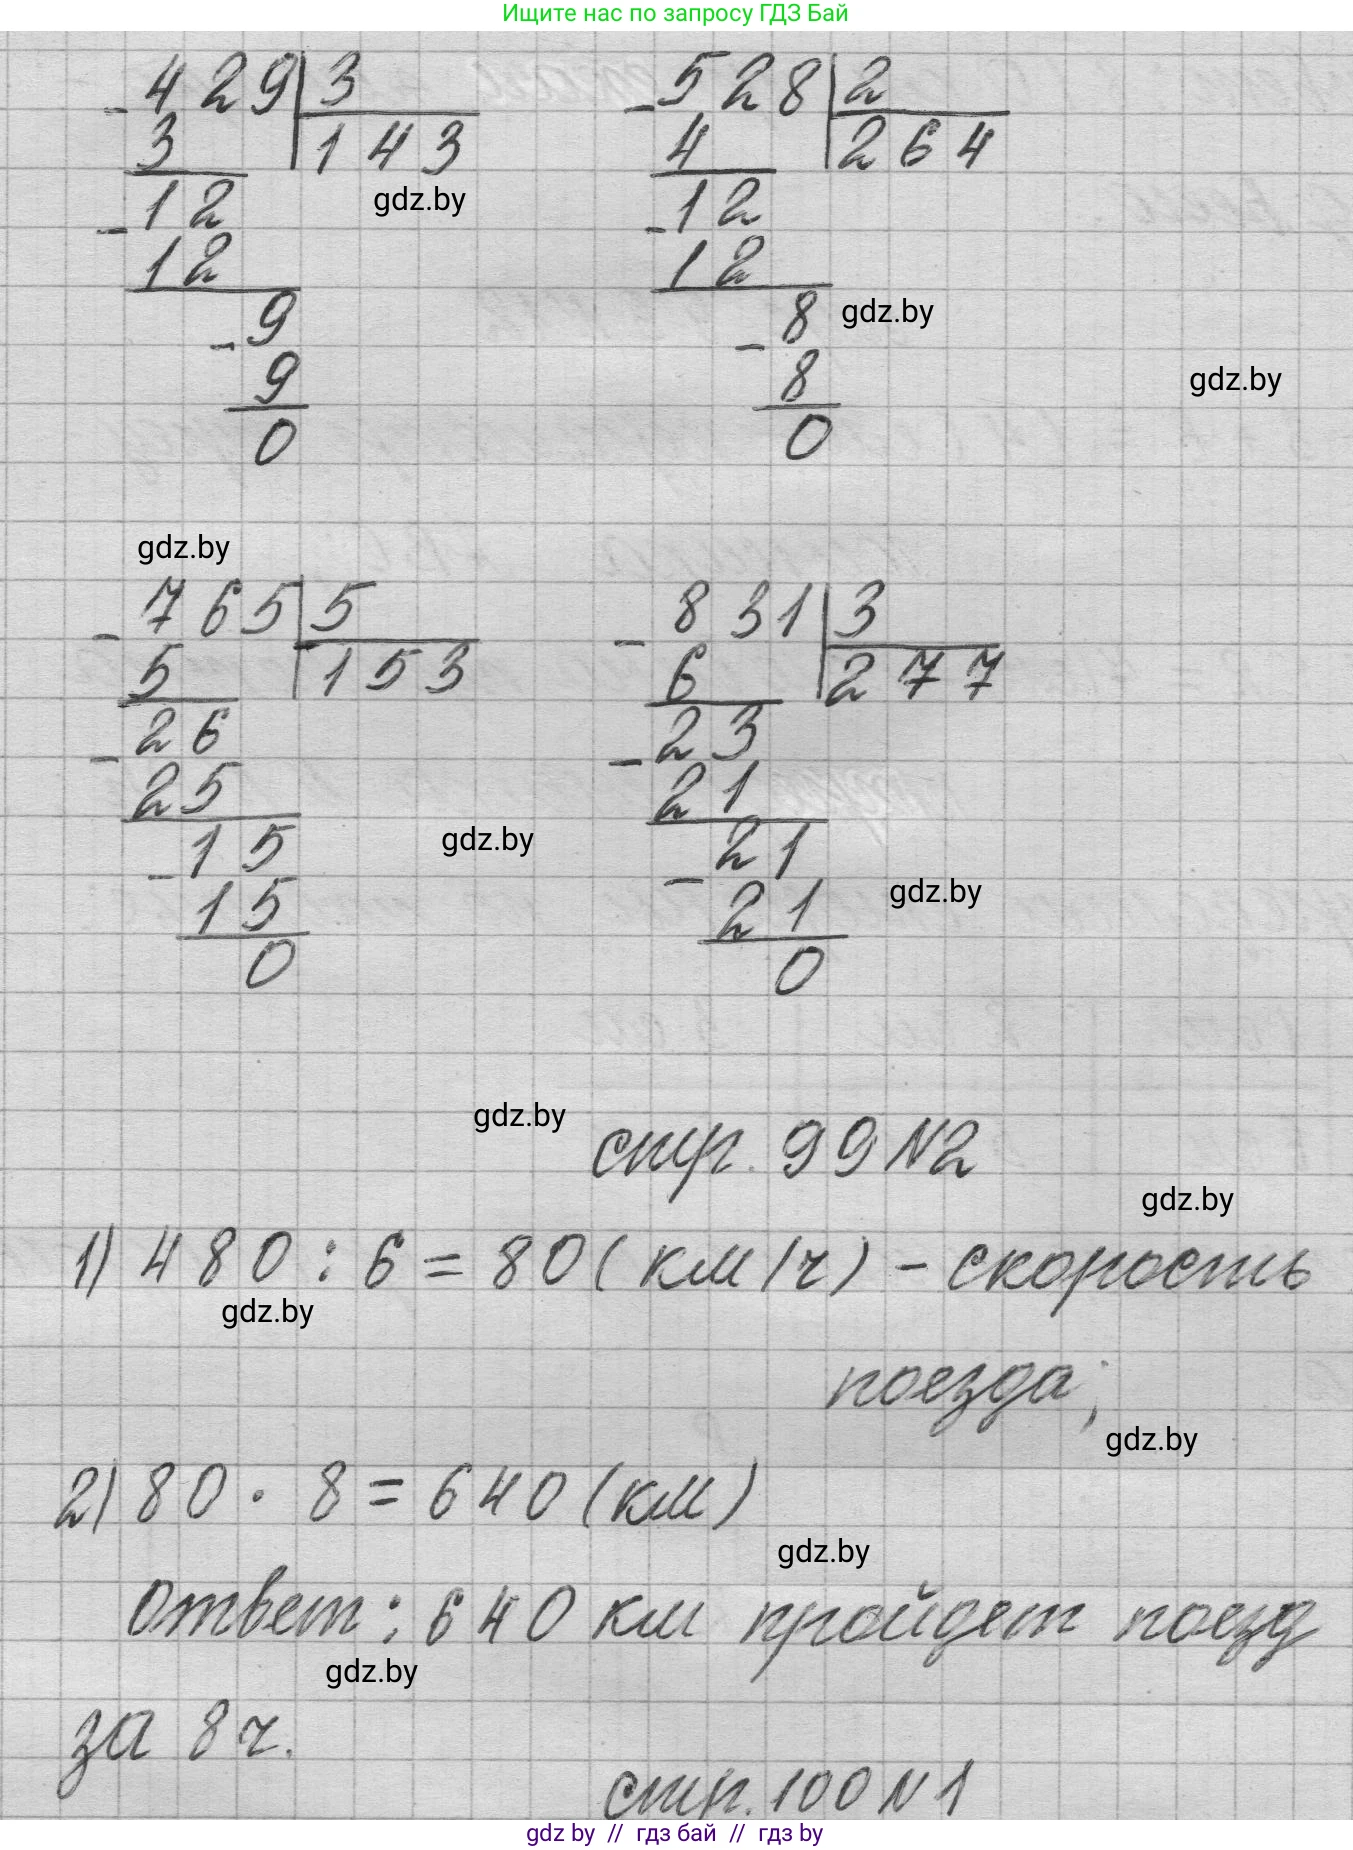 Ищите нас по запросу ГДЗ Бай
- 429 | 3
3 | 143
gdz.by
- 12
12
- 9
9
0
- 528 | 2
4 | 264
- 12
12
gdz.by
- 8
8
0
gdz.by
gdz.by
- 765 | 5
5 | 153
- 26
25
- 15
15
0
gdz.by
- 831 | 3
6 | 277
- 23
21
- 21
21
0
gdz.by
gdz.by
стр. 99 N2
gdz.by
1) 480 : 6 = 80 (км/ч) - скорость
gdz.by
поезда;
gdz.by
2) 80 · 8 = 640 (км)
gdz.by
ответ: 640 км пройдет поезд
gdz.by
за 8 ч.
стр. 100 N 1
gdz by // гдз бай // гдз by